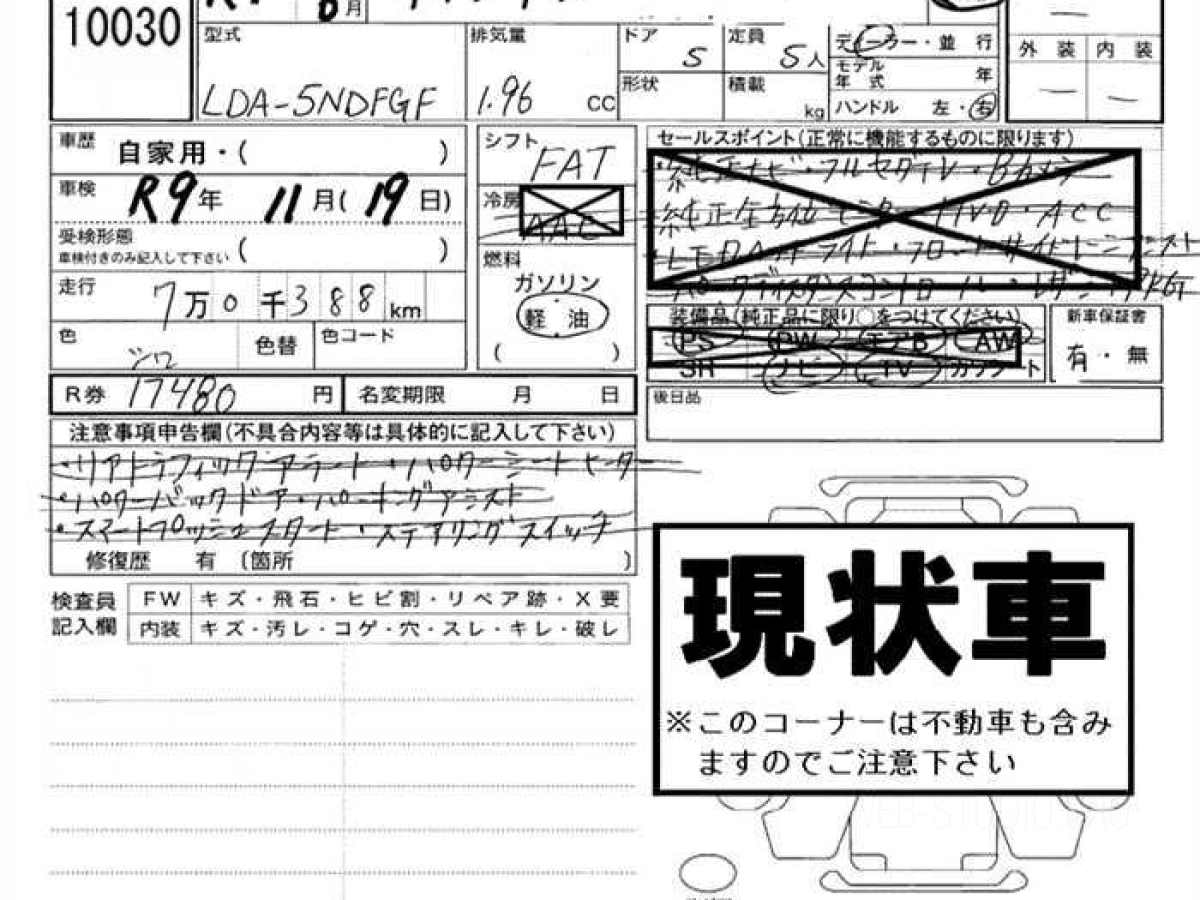 10030
月
型式 LDA-5NDFGF
排気量 1.96 cc
ドア 5
定員 5人
ディーラー・並 行
形状
積載 kg
モデル年式 年
ハンドル 左・右
外 装 内 装
車歴 自家用・( )
シフト FAT
セールスポイント(正常に機能するものに限ります)
・純正ナビ・フルセグTV・Bカメラ
車検 R9年 11月(19日)
冷房 AAC
受検形態
車検付きのみ記入して下さい ( )
走行 7万0千388km
燃料
ガソリン
軽 油
( )
色
色替
色コード
装備品(純正品に限り○をつけてください)
PS PW エアB AW
SR ナビ TV カワシート
新車保証書
有・無
R券 17480円
名変期限 月 日
後日品
注意事項申告欄(不具合内容等は具体的に記入して下さい)
・リアトラフィックアラート・パワーシートヒーター
・パワーバックドア・パーキングアシスト
・スマートプッシュスタート・ステアリングスイッチ
修復歴 有 〔箇所 〕
検査員記入欄
FW キズ・飛石・ヒビ割・リペア跡・X要
内装 キズ・汚レ・コゲ・穴・スレ・キレ・破レ
現状車
※このコーナーは不動車も含み
ますのでご注意下さい